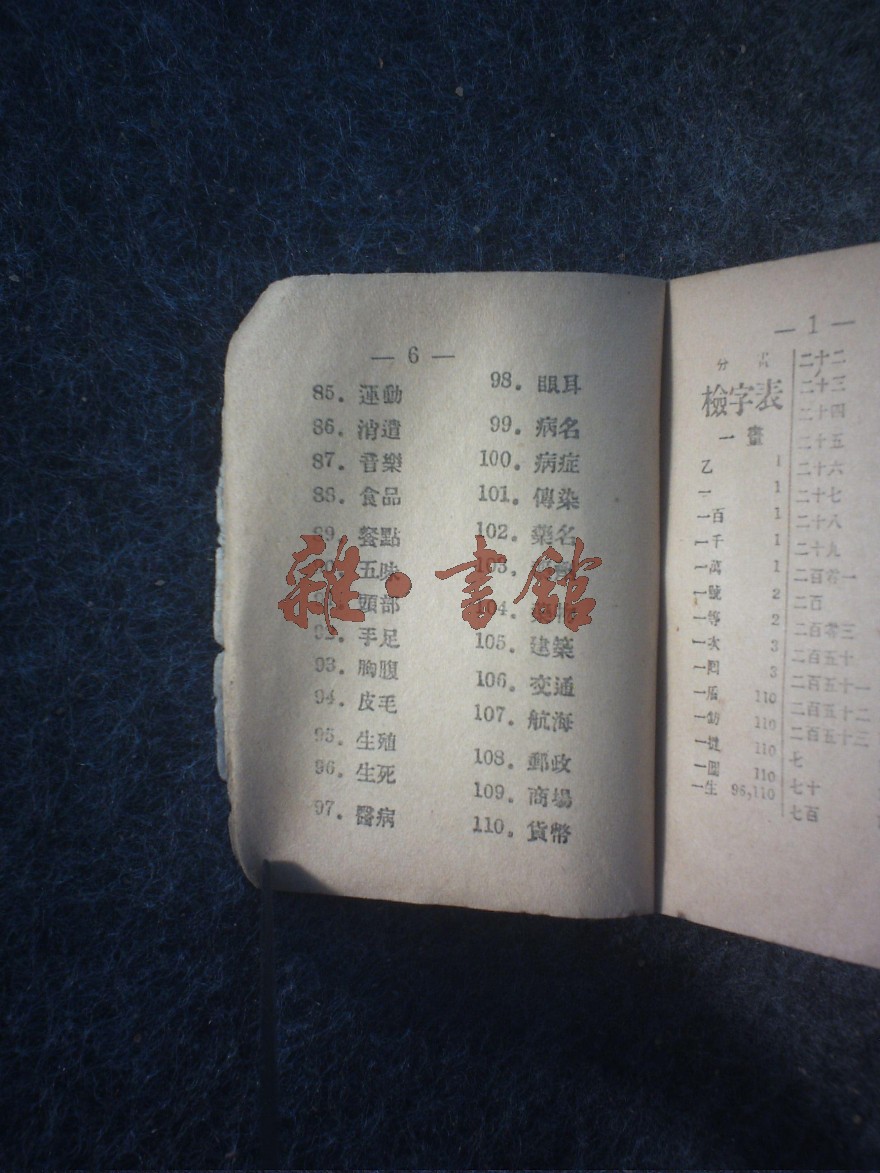 — 6 —
85. 運動
86. 消遣
87. 音樂
88. 食品
89. 餐點
90. 五味
頭部
92. 手足
93. 胸腹
94. 皮毛
95. 生殖
96. 生死
97. 醫病
98. 眼耳
99. 病名
100. 病症
101. 傳染
102. 藥名
103.
104.
105. 建築
106. 交通
107. 航海
108. 郵政
109. 商場
110. 貨幣
雜·書館
— 1 —
檢字表
一畫
乙 1
一 1
一百 1
一千 1
一萬 1
一號 2
一等 2
一次 3
一問 3
一盾 110
一鎊 110
110
110
一生 96,110
二十二
二十三
二十四
二十五
二十六
二十七
二十八
二十九
二百零一
二百
二百零三
二百五十
二百五十一
二百五十二
二百五十三
七
七十
七百